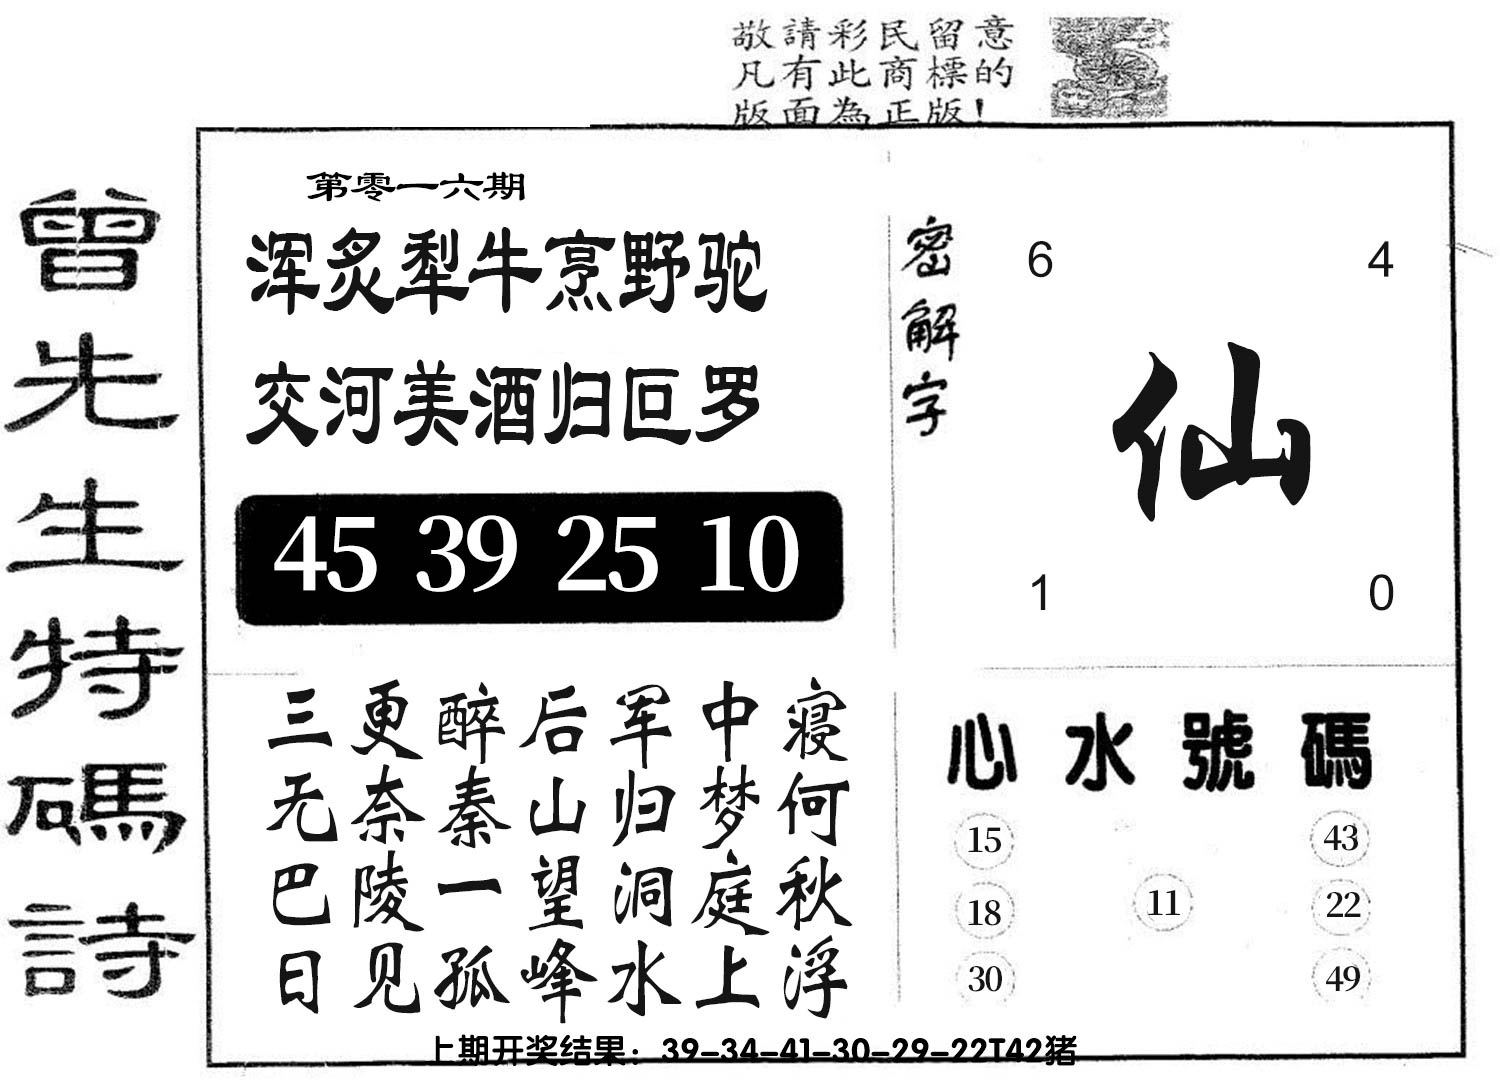 敬請彩民留意
凡有此商標的
版面為正版!
曾先生特碼詩
第零一六期
浑炙犁牛烹野驼
交河美酒归叵罗
45 39 25 10
密解字
6 4
仙
1 0
三更醉后军中寝
无奈秦山归梦何
巴陵一望洞庭秋
日见孤峰水上浮
心水號碼
15 43
11
18 22
30 49
上期开奖结果：39-34-41-30-29-22T42猪